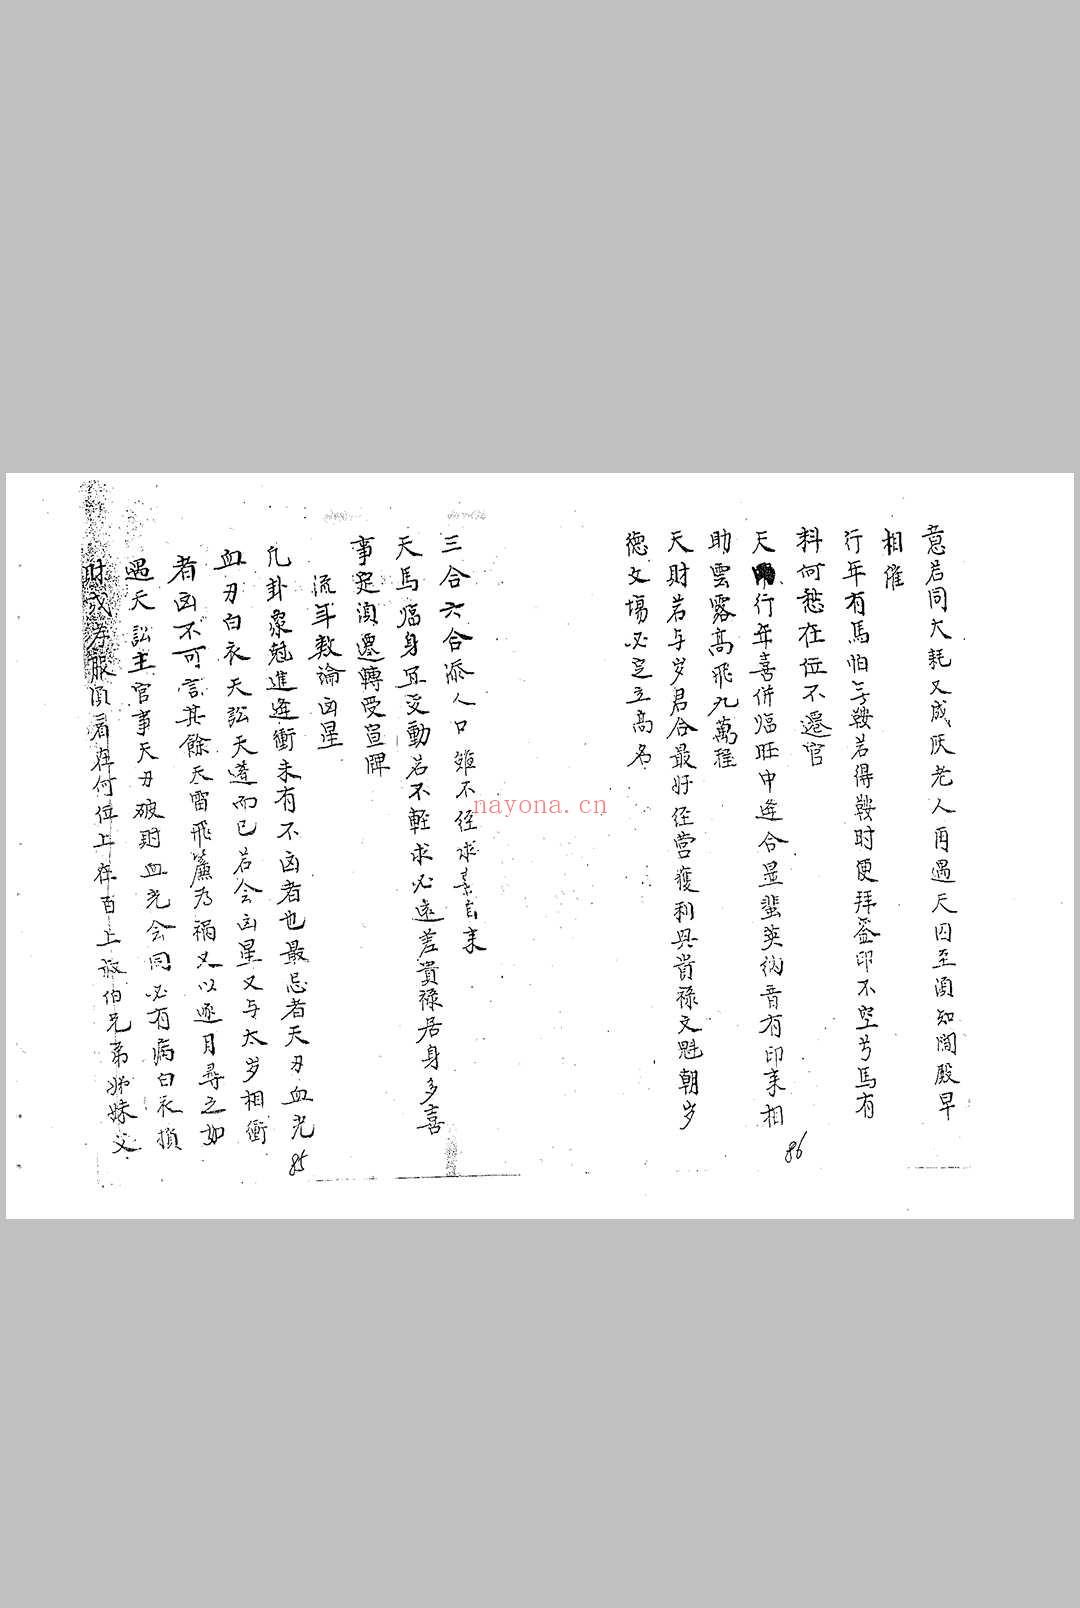 意若同大耗又成灰老人再遇天囚至須知閻殿早
相催
行年有馬怕无鞍若得鞍時便拜
印不空亏馬有
料何愁在位不遷官
天行年喜併臨旺中逢合显蜚英納音有印来相
助雲霄高飛九萬程
天財若与岁君合最好经营獲利與貲禄文魁朝岁
德文場必定立高名
86
三合六合添人口雖不径求来
天馬臨身宜受動若不輕求必遠差貴禄居身多喜
事定須遷轉受宣牌
流年数論凶星
凡卦象尅進逢衝未有不凶者也最忌者天刃血光
血刃白衣天訟天遊而已若会凶星又与太岁相衝
者凶不可言其餘天雷飛簾为禍又以逐月尋之如
遇天訟主官事天刃破財血光会同必有病白衣損
財或孝服須看在何位上在百上叔伯兄弟姊妹父
85
nayona.cn